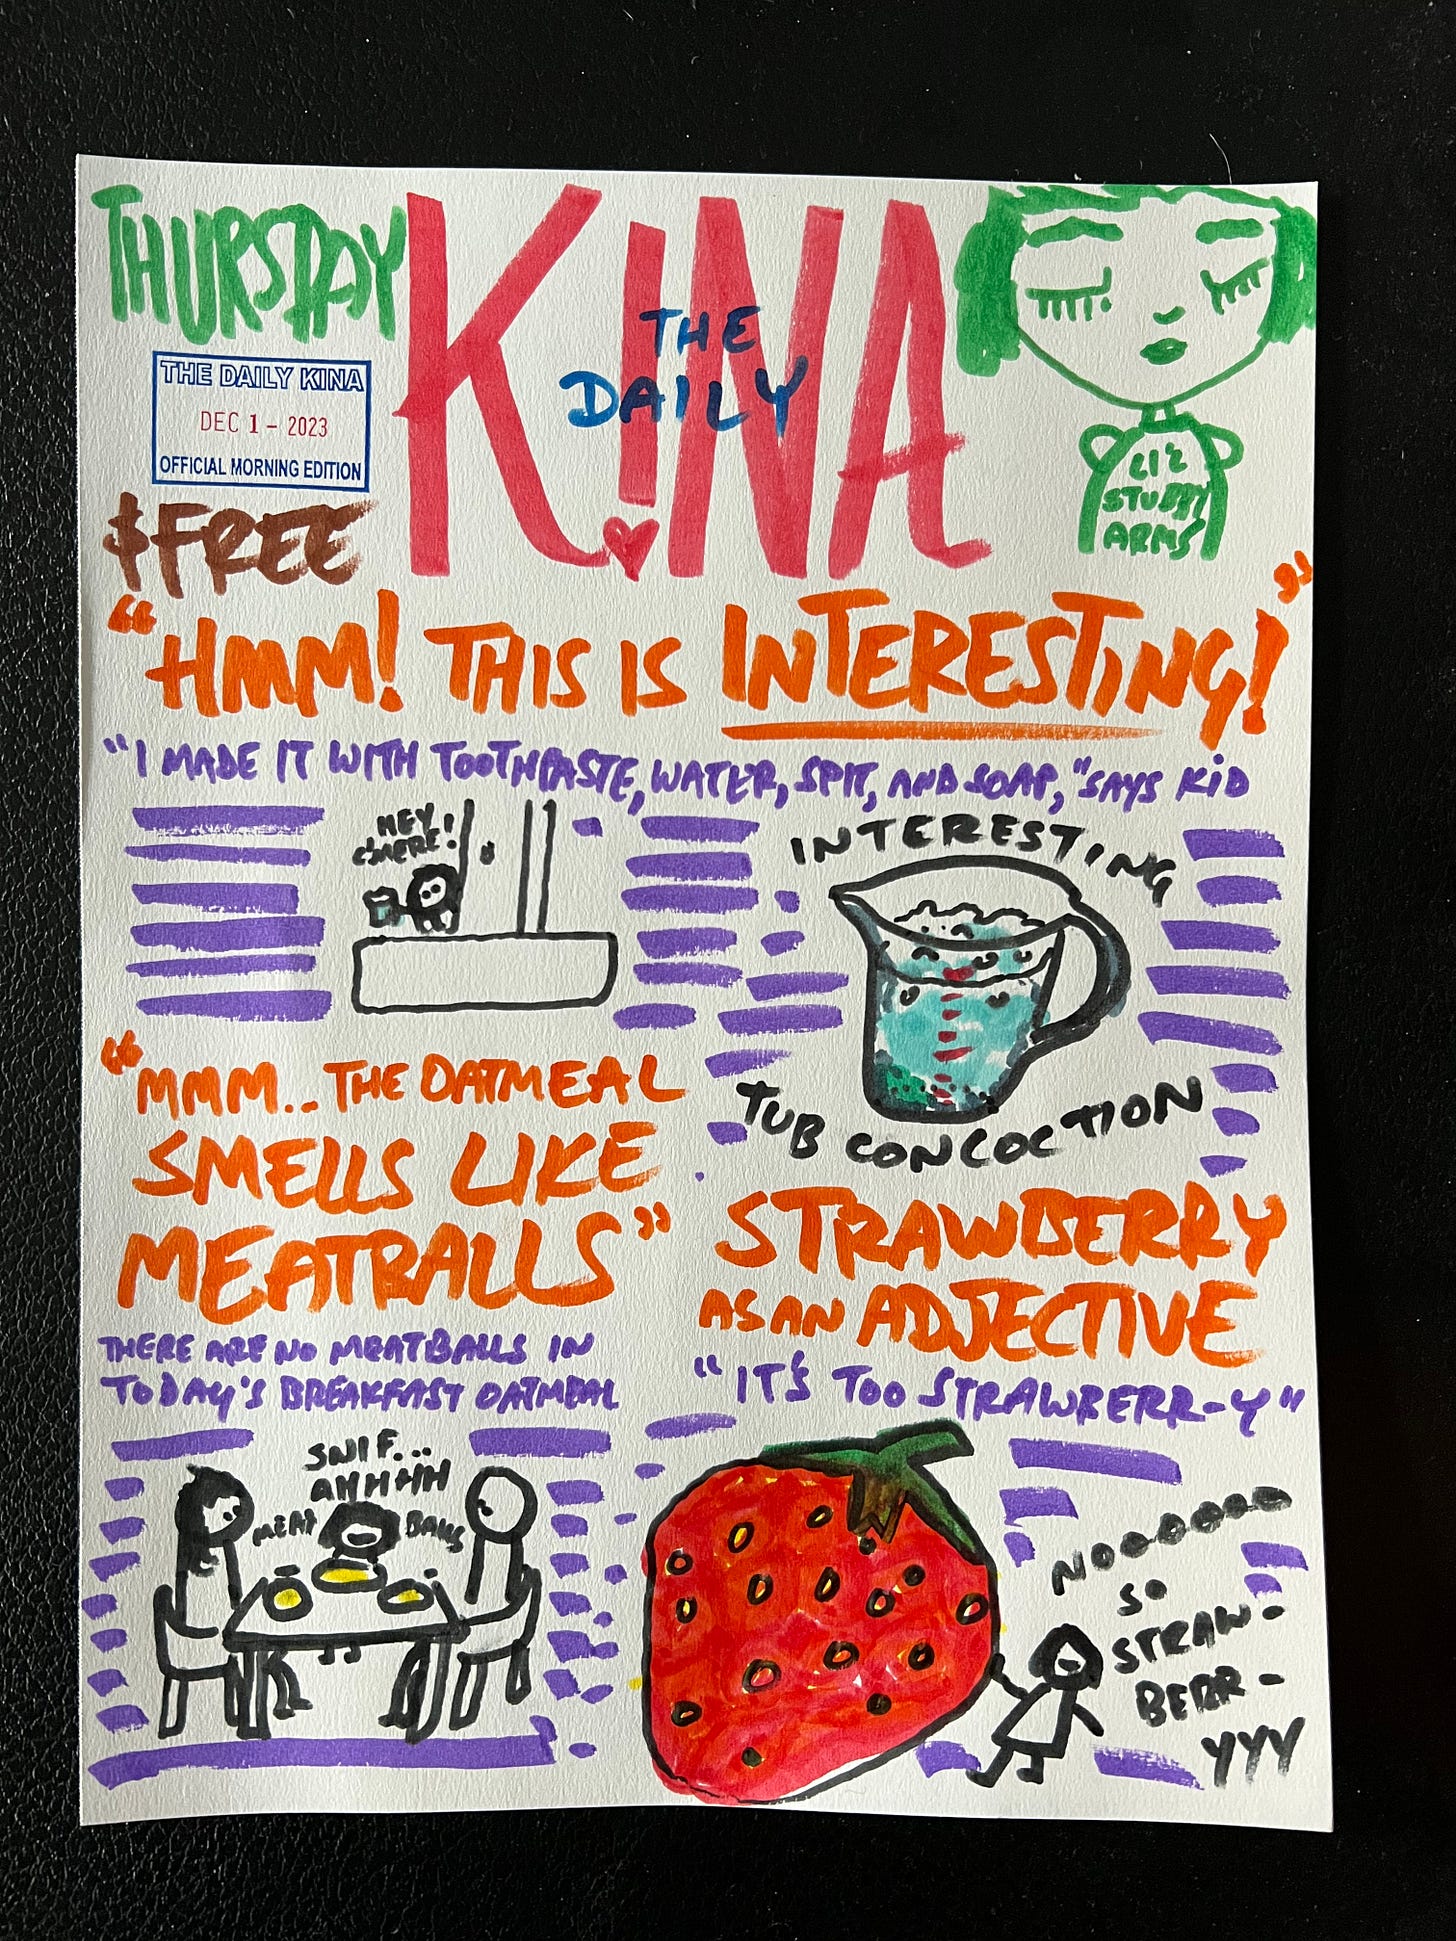 THURSDAY
THE DAILY KINA
DEC 1 - 2023
OFFICIAL MORNING EDITION
$FREE
KINA
THE
DAILY
LI'L
STUBBY
ARMS
"HMM! THIS IS INTERESTING!"
"I MADE IT WITH TOOTHPASTE, WATER, SPIT, AND SOAP," SAYS KID
HEY!
C'MERE!
INTERESTING
TUB CONCOCTION
"MMM.. THE OATMEAL
SMELLS LIKE
MEATBALLS"
THERE ARE NO MEATBALLS IN
TODAY'S BREAKFAST OATMEAL
SNIF...
AHHHHH
MEAT BALLS
STRAWBERRY
AS AN ADJECTIVE
"IT'S TOO STRAWBERR-Y"
NOOOOOO
SO
STRAW-
BERR-
YYY